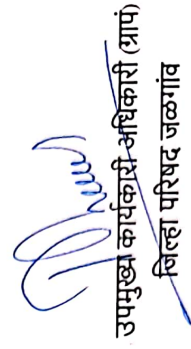 उपमुख्य कार्यकारी अधिकारी (ग्रापं)
जिल्हा परिषद जळगांव